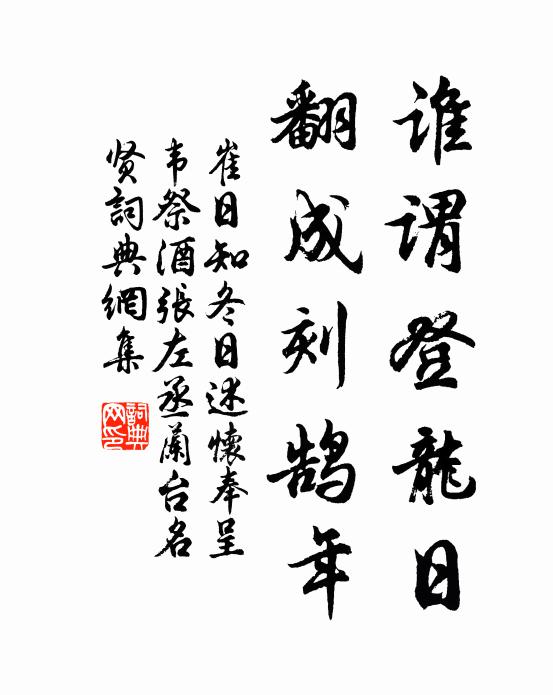 谁谓登龍日
翻成刻鹄年
崔日知冬日述懷奉呈
韦祭酒張左丞蘭台名
贤詞典網集
詞典网印